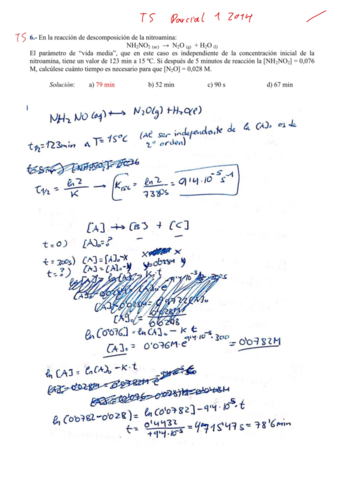 TS Parcial 1 2014
TS 6.- En la reacción de descomposición de la nitroamina:
NH2NO2 (ac) → N2O (g) + H2O (l)
El parámetro de “vida media”, que en este caso es independiente de la concentración inicial de la
nitroamina, tiene un valor de 123 min a 15 ºC. Si después de 5 minutos de reacción la [NH2NO2] = 0,076
M, calcúlese cuánto tiempo es necesario para que [N2O] = 0,028 M.
Solución: a) 79 min b) 52 min c) 90 s d) 67 min
NH2 NO(aq) → N2O(g)+H2O(l)
t1/2=123min a T=15ºC (Al ser independiente de la [A]o es de
orden)
t1/2 = ln2/K → K15ºC = ln2/7380s = 9'4·10^-5 s^-1
[A] → [B] + [C]
t=0) [A]o=?
t=300s) [A]=[A]o-x x x
t=?) [A]=[A]o-y 0'028M y
ln(0'076)=ln[A]o - K t
[A]o = 0'076M·e^9'4·10^-5·300 = 0'0782M
ln[A]=ln[A]o-K·t
ln(0'0782-0'028)=ln[0'0782]-9'4·10^-5·t
t= 0'4432/+9'4·10^-5 = 4715'47s = 78'6min